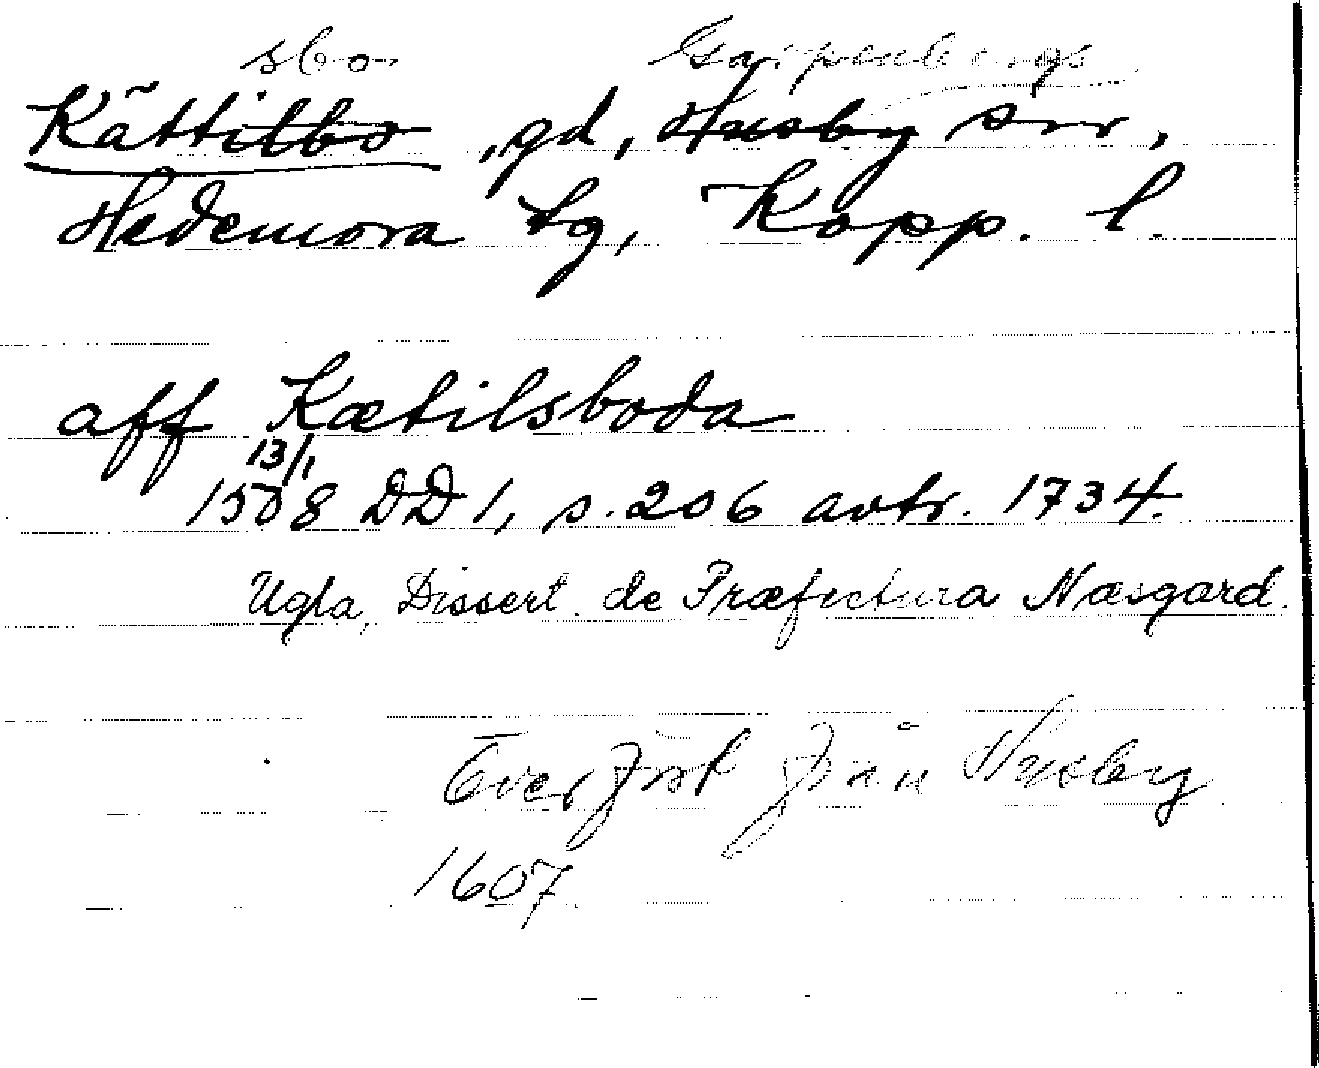 sbo Garpenbergs
Kättilbo, gd, Husby snr,
Hedemora tg, Kopp. l.
aff Kætilsboda
13/1
1508 DD 1, s. 206 avtr. 1734.
Ugla, Dissert. de Præfectura Næsgard.
Överförd från Husby
1607.